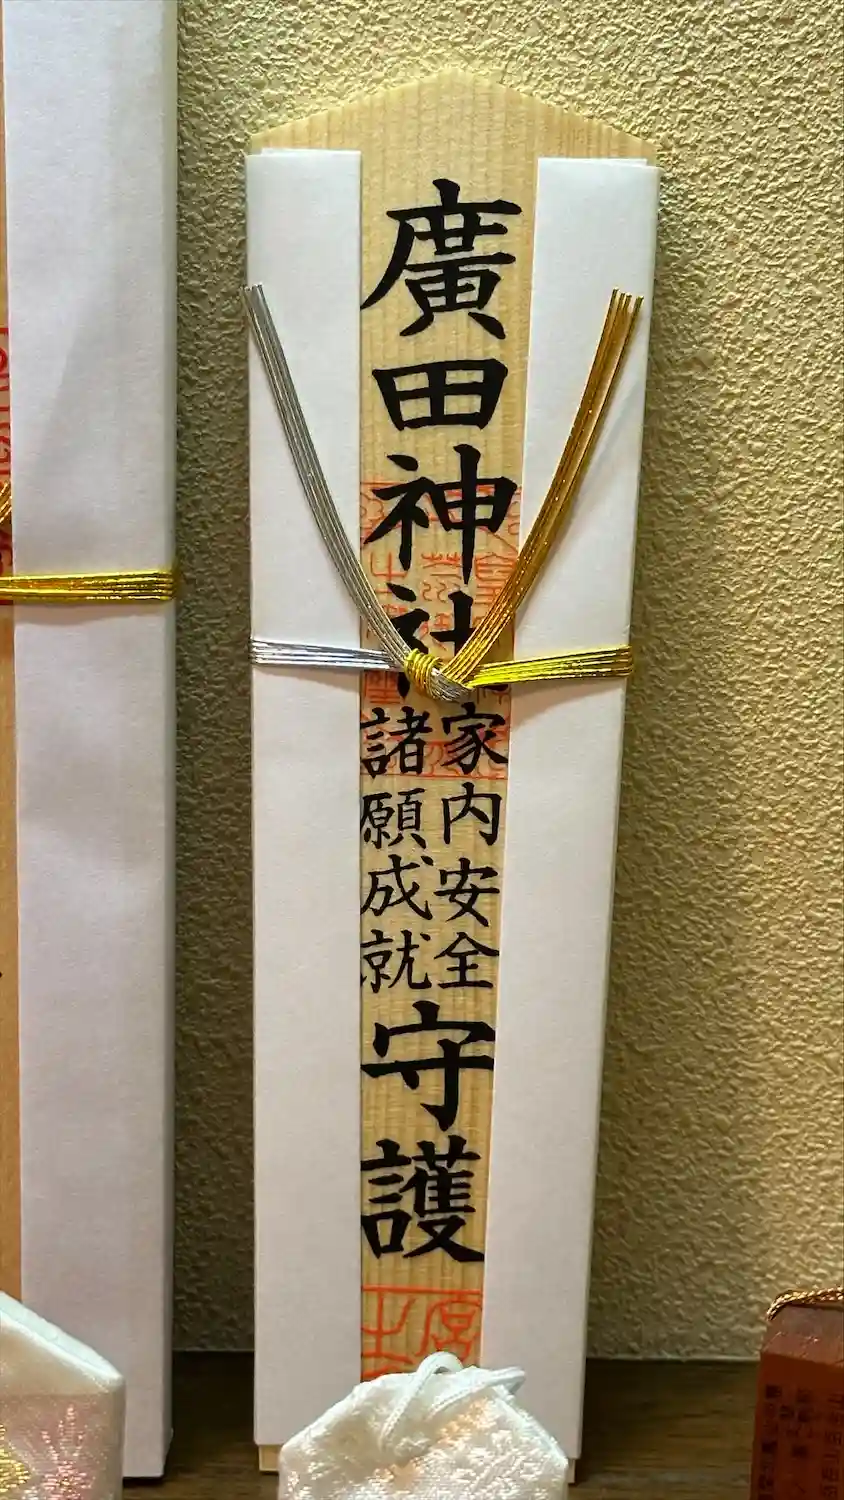 廣田神社
家内安全
諸願成就
守護